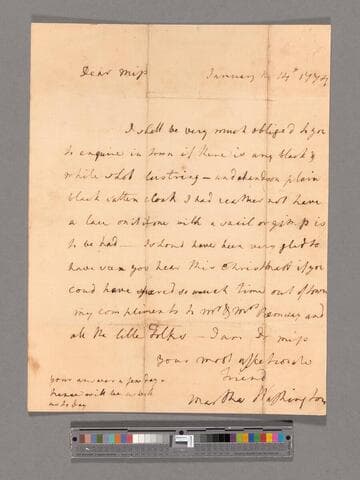 Dear Miss January 14th 1774
I shall be very much obliged to you
to enquire in town if there is any black &
while shot lustring — and a handsom plain
black satten cloak I had reather not have
a lace on it done with a snail or gimp is
to be had — I shond have been very glad to
have seen you hear this Christmass if you
coud have spared so much time out of town
my complements to Mr & Mrs Ramsay and
all the little Folks — I am Dr miss
your most affectionate
Friend
Martha Washington
your answer a few days
hence will be as well
as to day